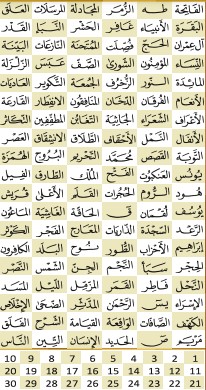 الفَاتِحَة طه الزُّمَر المُجَادلة المُرسَلات العَلَق
البَقَرَة الأنبيَاء غَافِر الحَشْر النَّبَأ القَدْر
آل عِمرَان الحَجّ فُصِّلَت المُمتَحنَة النَّازعَات البَيّنَة
النِّسَاء المؤمِنُون الشّورىٰ الصَّف عَبَسَ الزَّلزَلة
المَائِدَة النُّور الزُّخرُف الجُمُعَة التَّكوير العَاديَات
الأنعَام الفُرقَان الدّخَان المنَافِقُون الانفِطَار القَارعَة
الأعرَاف الشُّعَرَاء الجَاثيَة التّغَابُن المطفِّفِين التّكَاثُر
الأنفَال النَّمْل الأحْقَاف الطَّلَاق الانشِقَاق العَصْر
التَّوبَة القَصَص مُحَمَّد التّحْرِيم البُرُوج الهُمَزَة
يُونُس العَنكبُوت الفَتْح المُلْك الطَّارق الفِيل
هُود الرُّوم الحُجُرَات القَلَم الأَعْلىٰ قُرَيش
يُوسُف لُقمَان ق الحَاقَّة الغَاشِيَة المَاعُون
الرَّعْد السَّجْدَة الذّاريَات المعَارج الفَجْر الكَوثَر
إبراهِيم الأحْزَاب الطُّور نُوح البَلَد الكَافِرُون
الحِجْر سَبَأ النَّجْم الجِنّ الشَّمْس النَّصْر
النَّحْل فَاطِر القَمَر المزّمِّل اللَّيْل المَسَد
الإسْرَاء يسٓ الرَّحمٰن المدَّثِّر الضُّحَىٰ الإخْلَاص
الكَهْف الصَّافات الوَاقِعَة القِيَامَة الشَّرْح الفَلَق
مَريَم صٓ الحَديد الإنسَان التِّين النَّاس
1 2 3 4 5 6 7 8 9 10
11 12 13 14 15 16 17 18 19 20
21 22 23 24 25 26 27 28 29 30